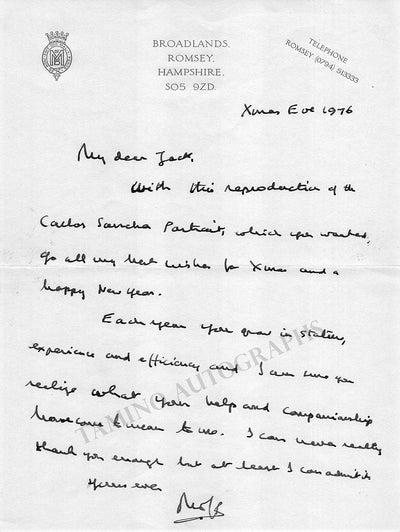 BROADLANDS,
ROMSEY,
HAMPSHIRE.
SO5 9ZD.
TELEPHONE
ROMSEY (0794) 513333
Xmas Eve 1976
My dear Jack,
With this reproduction of the
Carlos Sancha Portrait, which you wanted,
go all my best wishes for Xmas and a
happy New Year.
Each year you grow in stature,
experience and efficiency and I am sure you
realize what your help and companionship
have come to mean to me. I can never really
thank you enough but at least I can admit it
Yours ever
TAMINO AUTOGRAPHS